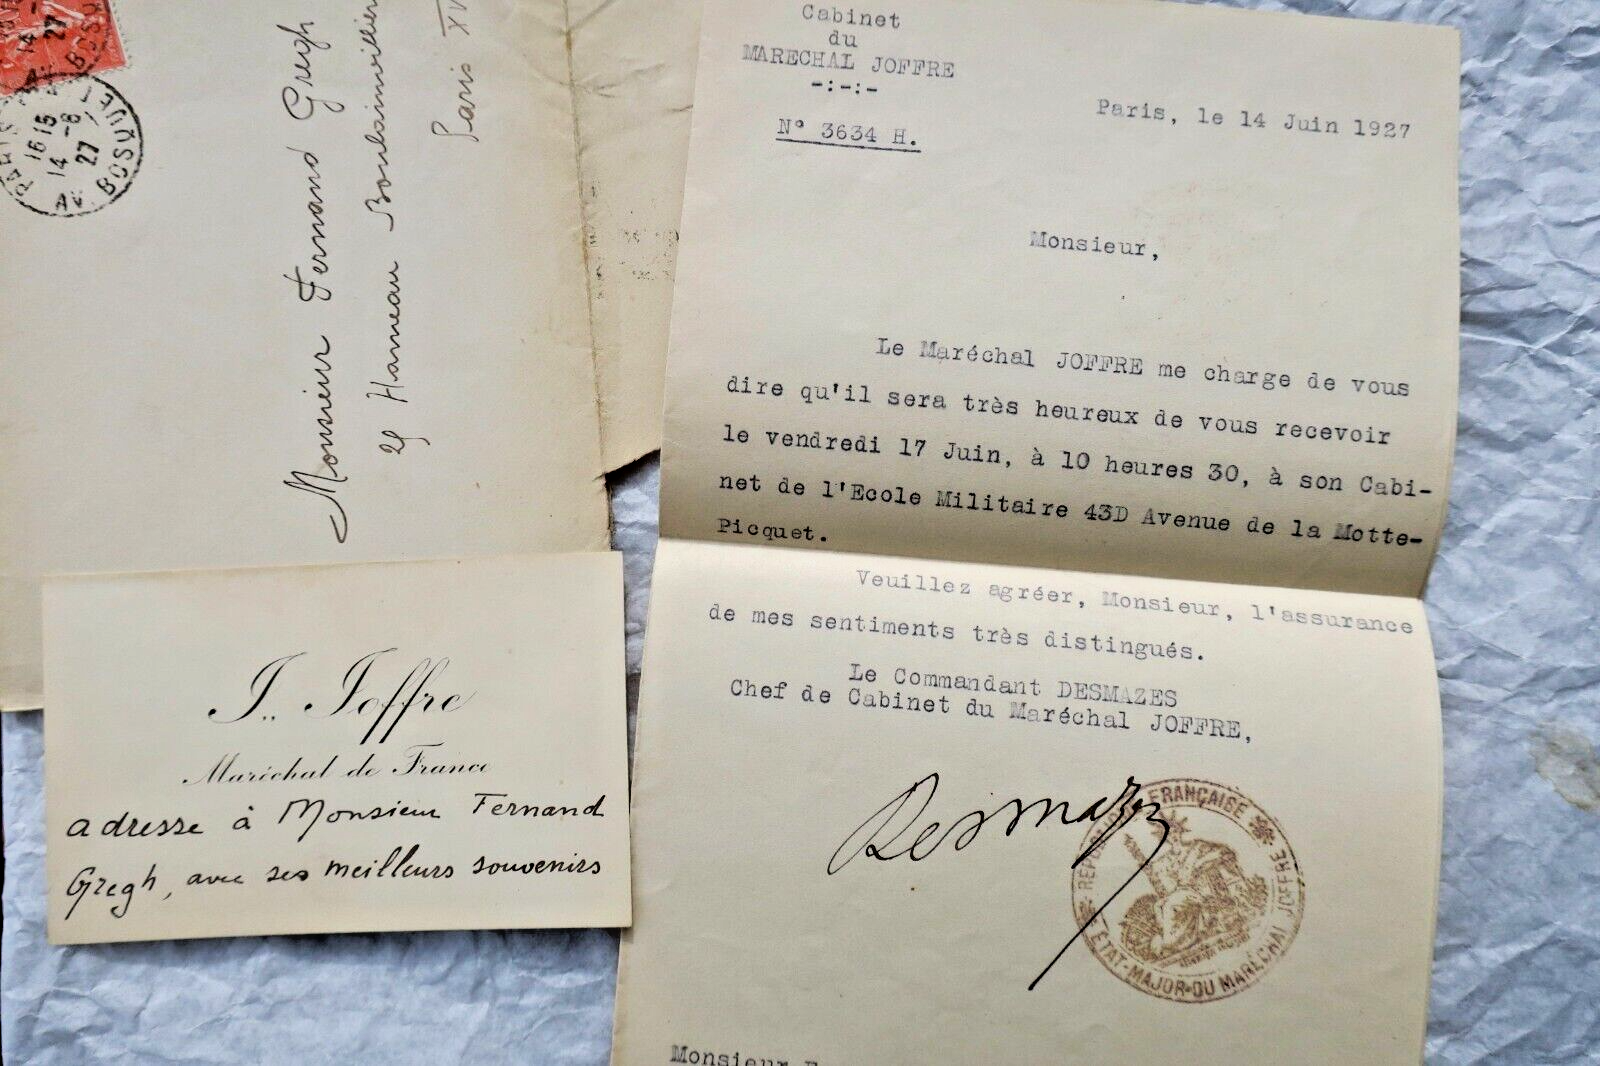 Cabinet
du
MARECHAL JOFFRE
-:-:-
N° 3634 H.
Paris, le 14 Juin 1927
Monsieur,
Le Maréchal JOFFRE me charge de vous
dire qu'il sera très heureux de vous recevoir
le vendredi 17 Juin, à 10 heures 30, à son Cabi-
net de l'Ecole Militaire 43D Avenue de la Motte-
Picquet.
Veuillez agréer, Monsieur, l'assurance
de mes sentiments très distingués.
Le Commandant DESMAZES
Chef de Cabinet du Maréchal JOFFRE,
Desmazes
RÉPUBLIQUE FRANÇAISE
ÉTAT-MAJOR DU MARÉCHAL JOFFRE
Monsieur
Monsieur Fernand Gregh
Hameau Boulainvilliers
Paris XV
PARIS
16 15
14 -8
27
AV. BOSQUET
J. Joffre
Maréchal de France
adresse à Monsieur Fernand
Gregh, avec ses meilleurs souvenirs